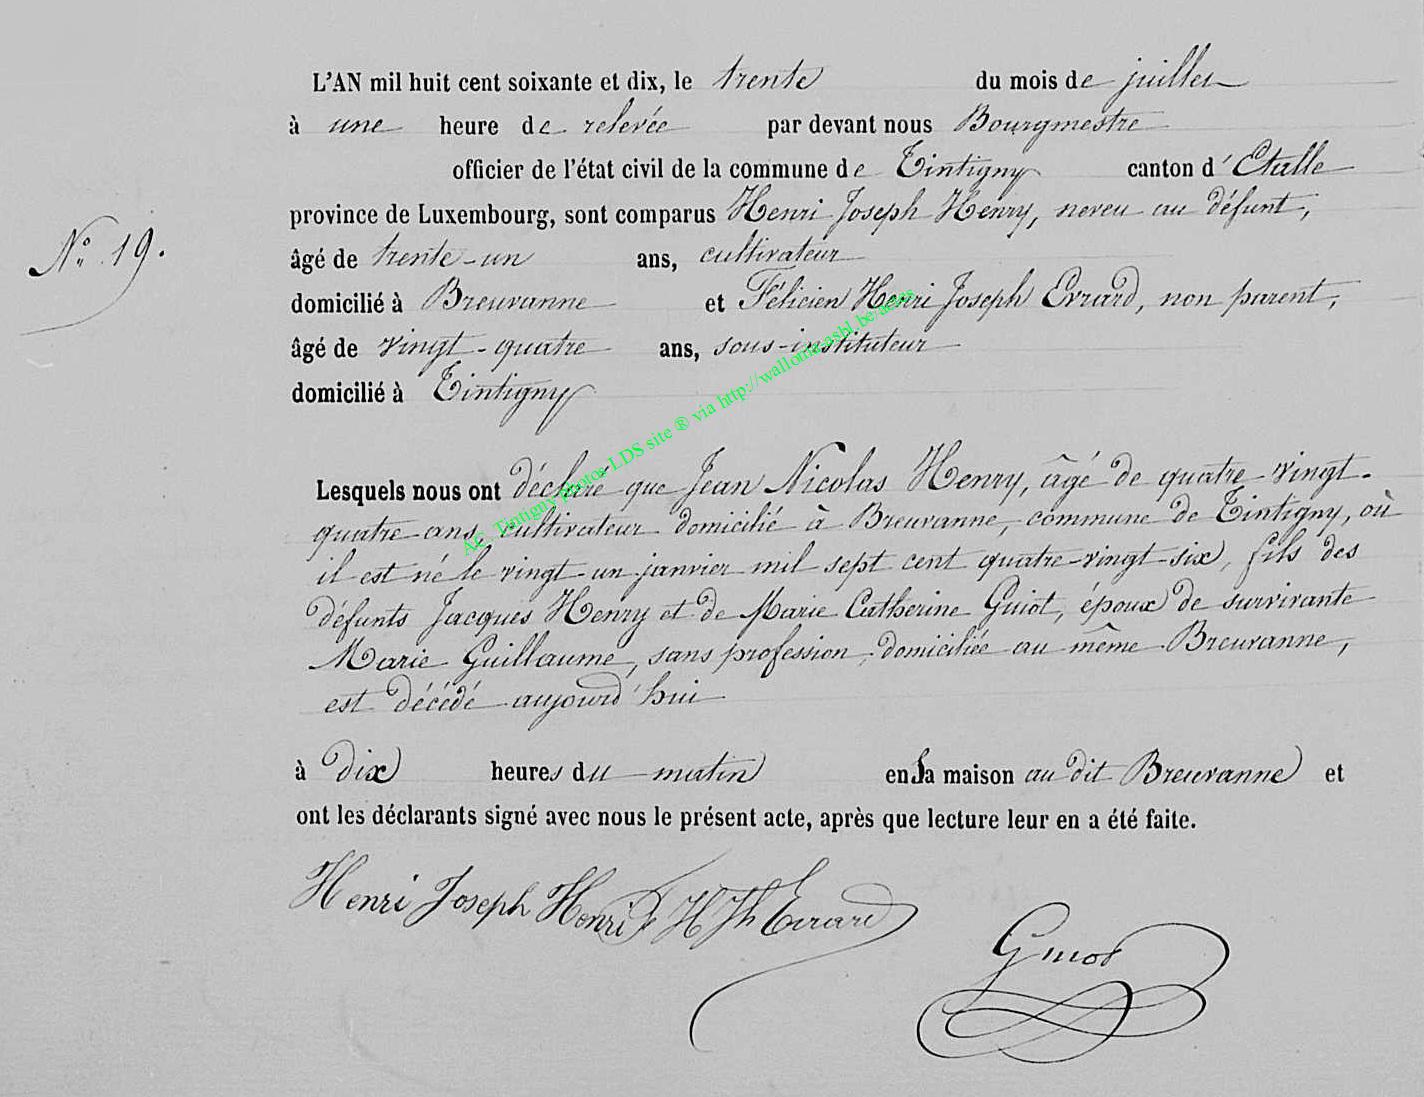 L'AN mil huit cent soixante et dix, le trente du mois de juillet
à une heure de relevée par devant nous Bourgmestre
officier de l'état civil de la commune de Tintigny canton d'Etalle
province de Luxembourg, sont comparus Henri Joseph Henry, neveu au défunt,
N° 19.
âgé de trente-un ans, cultivateur
domicilié à Breuvanne et Félicien Henri Joseph Evrard, non parent,
âgé de vingt-quatre ans, sous-instituteur
domicilié à Tintigny
AC Tintigny photos LDS site ® via http://wallonia-asbl.be/actes
Lesquels nous ont déclaré que Jean Nicolas Henry, âgé de quatre-vingt-
quatre ans, cultivateur domicilié à Breuvanne, commune de Tintigny, où
il est né le vingt-un janvier mil sept cent quatre-vingt-six, fils des
défunts Jacques Henry et de Marie Catherine Guiot, époux de survivante
Marie Guillaume, sans profession, domiciliée au même Breuvanne,
est décédé aujourd'hui
à dix heures du matin en la maison au dit Breuvanne et
ont les déclarants signé avec nous le présent acte, après que lecture leur en a été faite.
Henri Joseph Henri F H Jh Evrard
Guiot